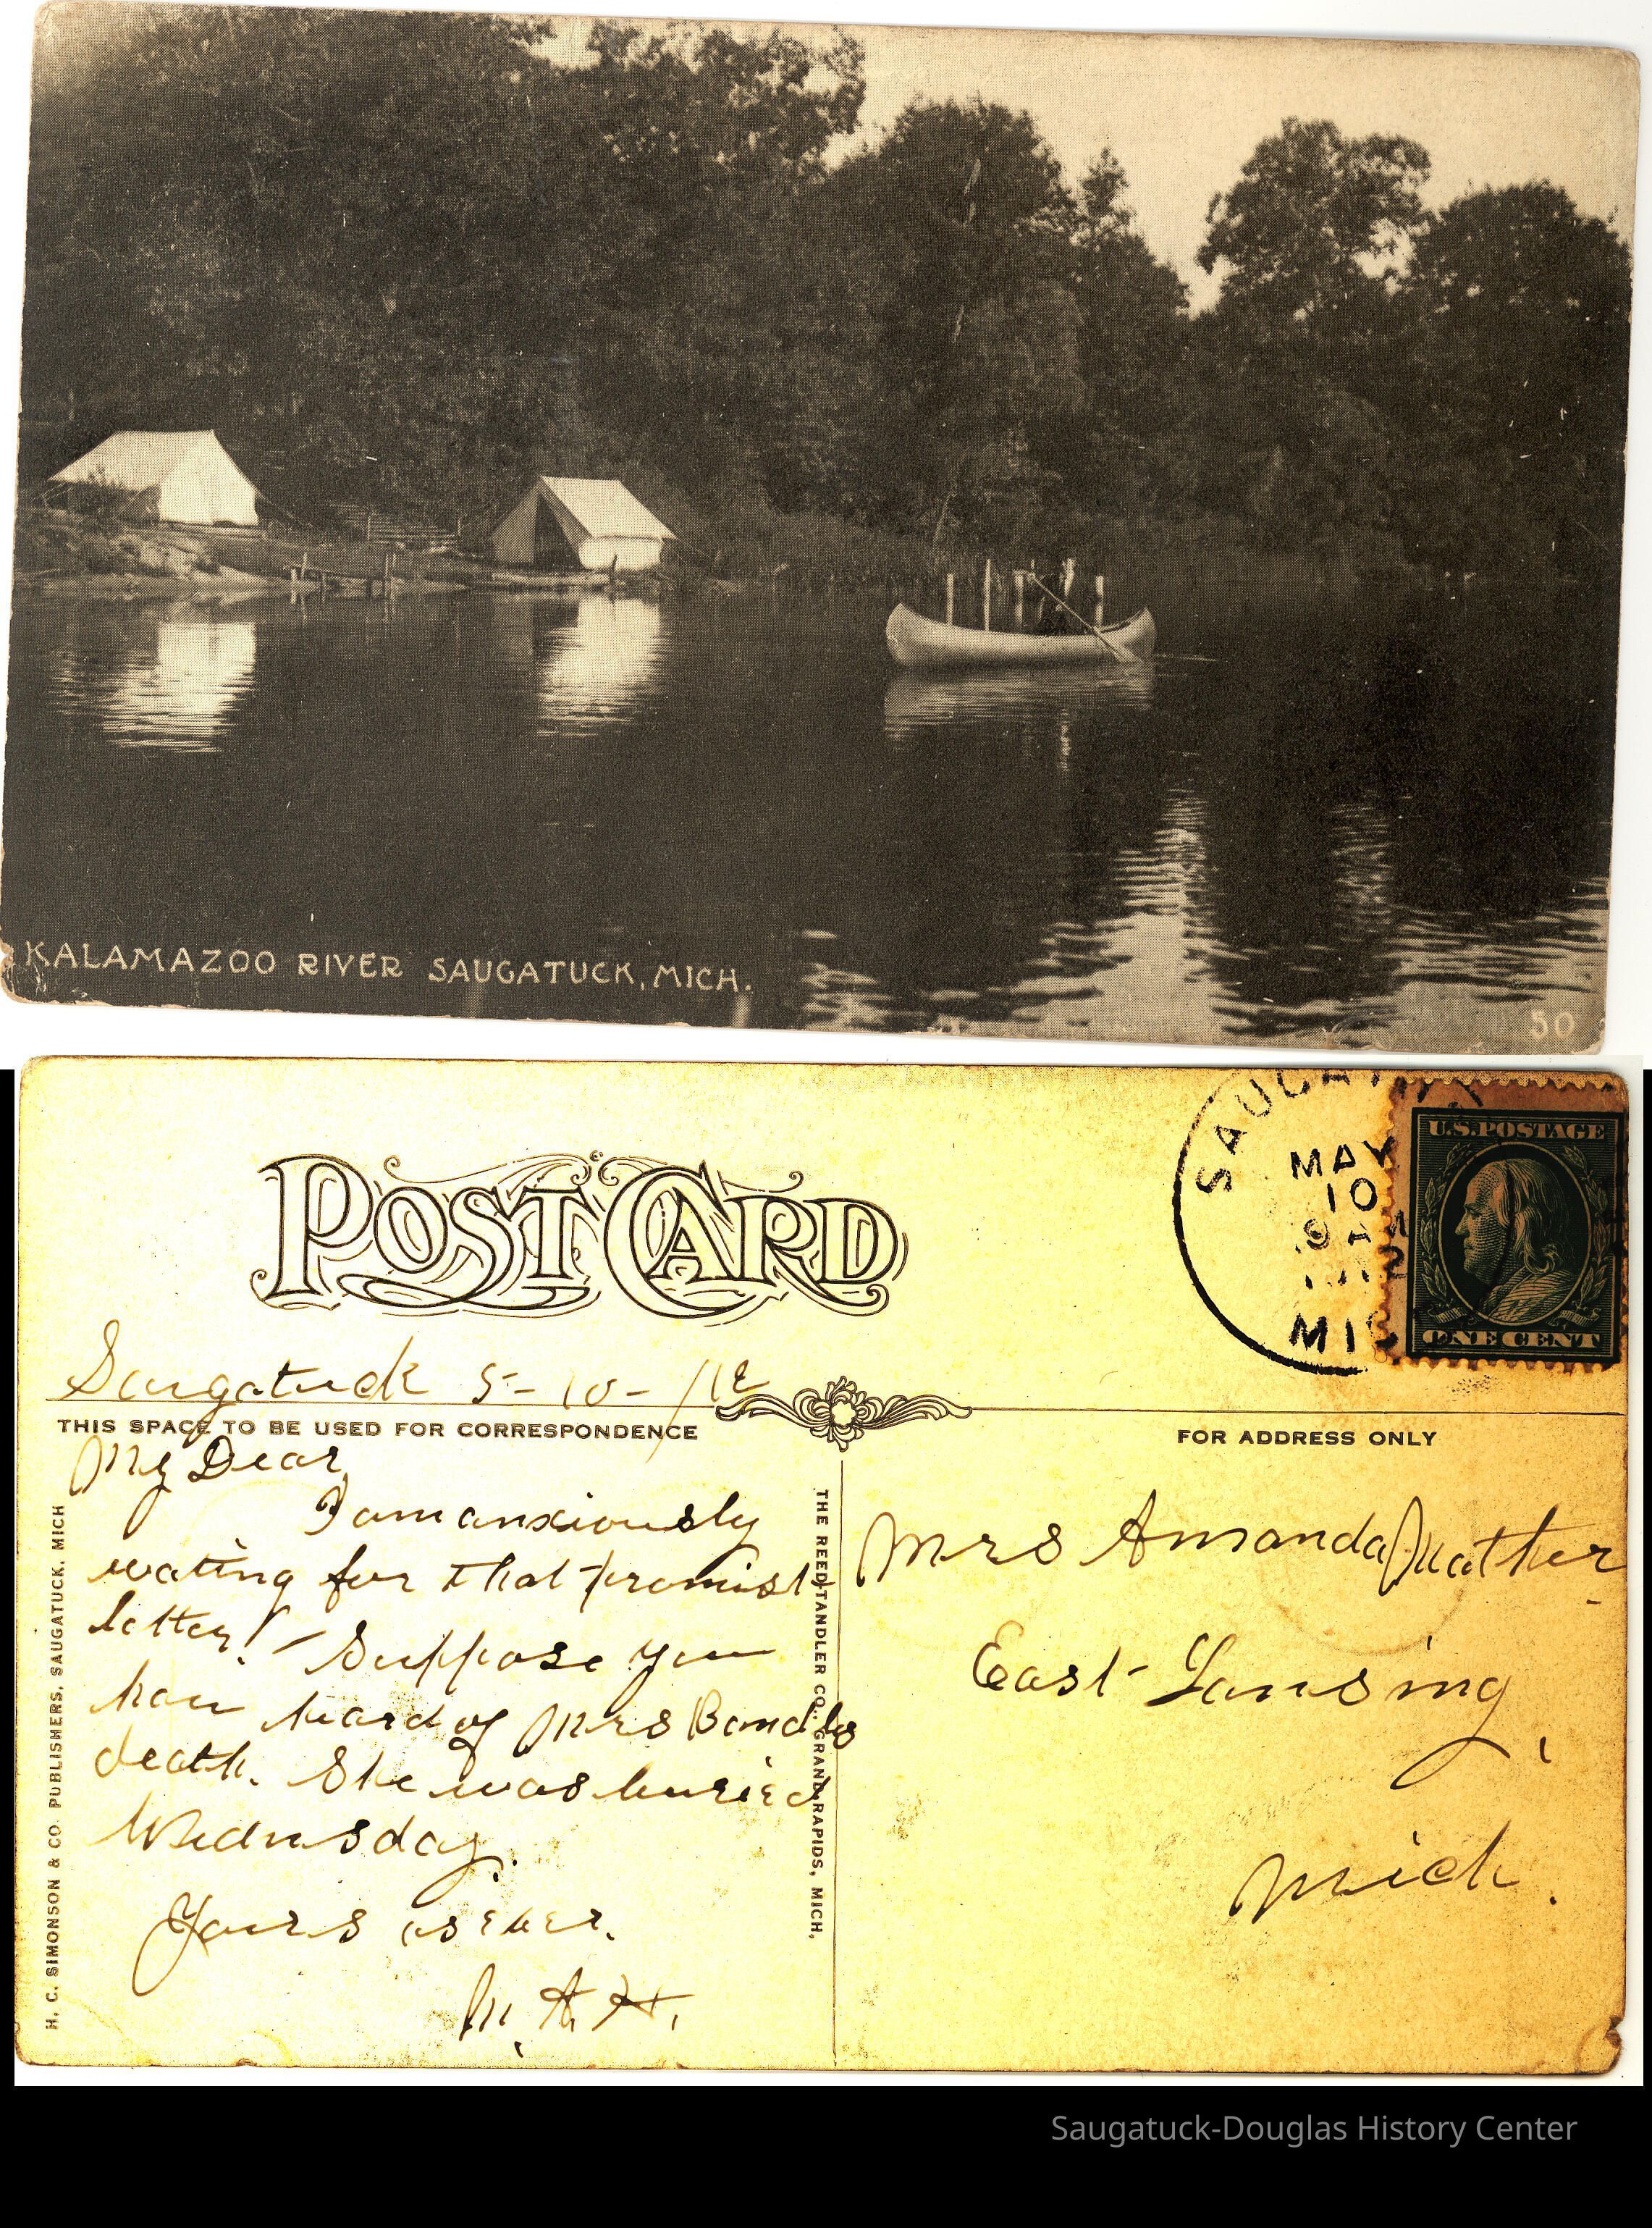 KALAMAZOO RIVER SAUGATUCK, MICH.
50
POST CARD
SAUGATUCK
MAY
10
9 AM
MIC
U.S. POSTAGE
ONE CENT
Saugatuck 5-10-/12
THIS SPACE TO BE USED FOR CORRESPONDENCE
FOR ADDRESS ONLY
My Dear,
I am anxiously
wating for that promist
letter! - Suppose you
have heard of Mrs
death. She was buried
Wednsday.
Yours as ever.
M. A. H.
Mrs Amanda Mather
East Lansing,
Mich.
H. C. SIMONSON & CO. PUBLISHERS, SAUGATUCK, MICH
THE REED TANDLER CO., GRAND RAPIDS, MICH.
Saugatuck-Douglas History Center